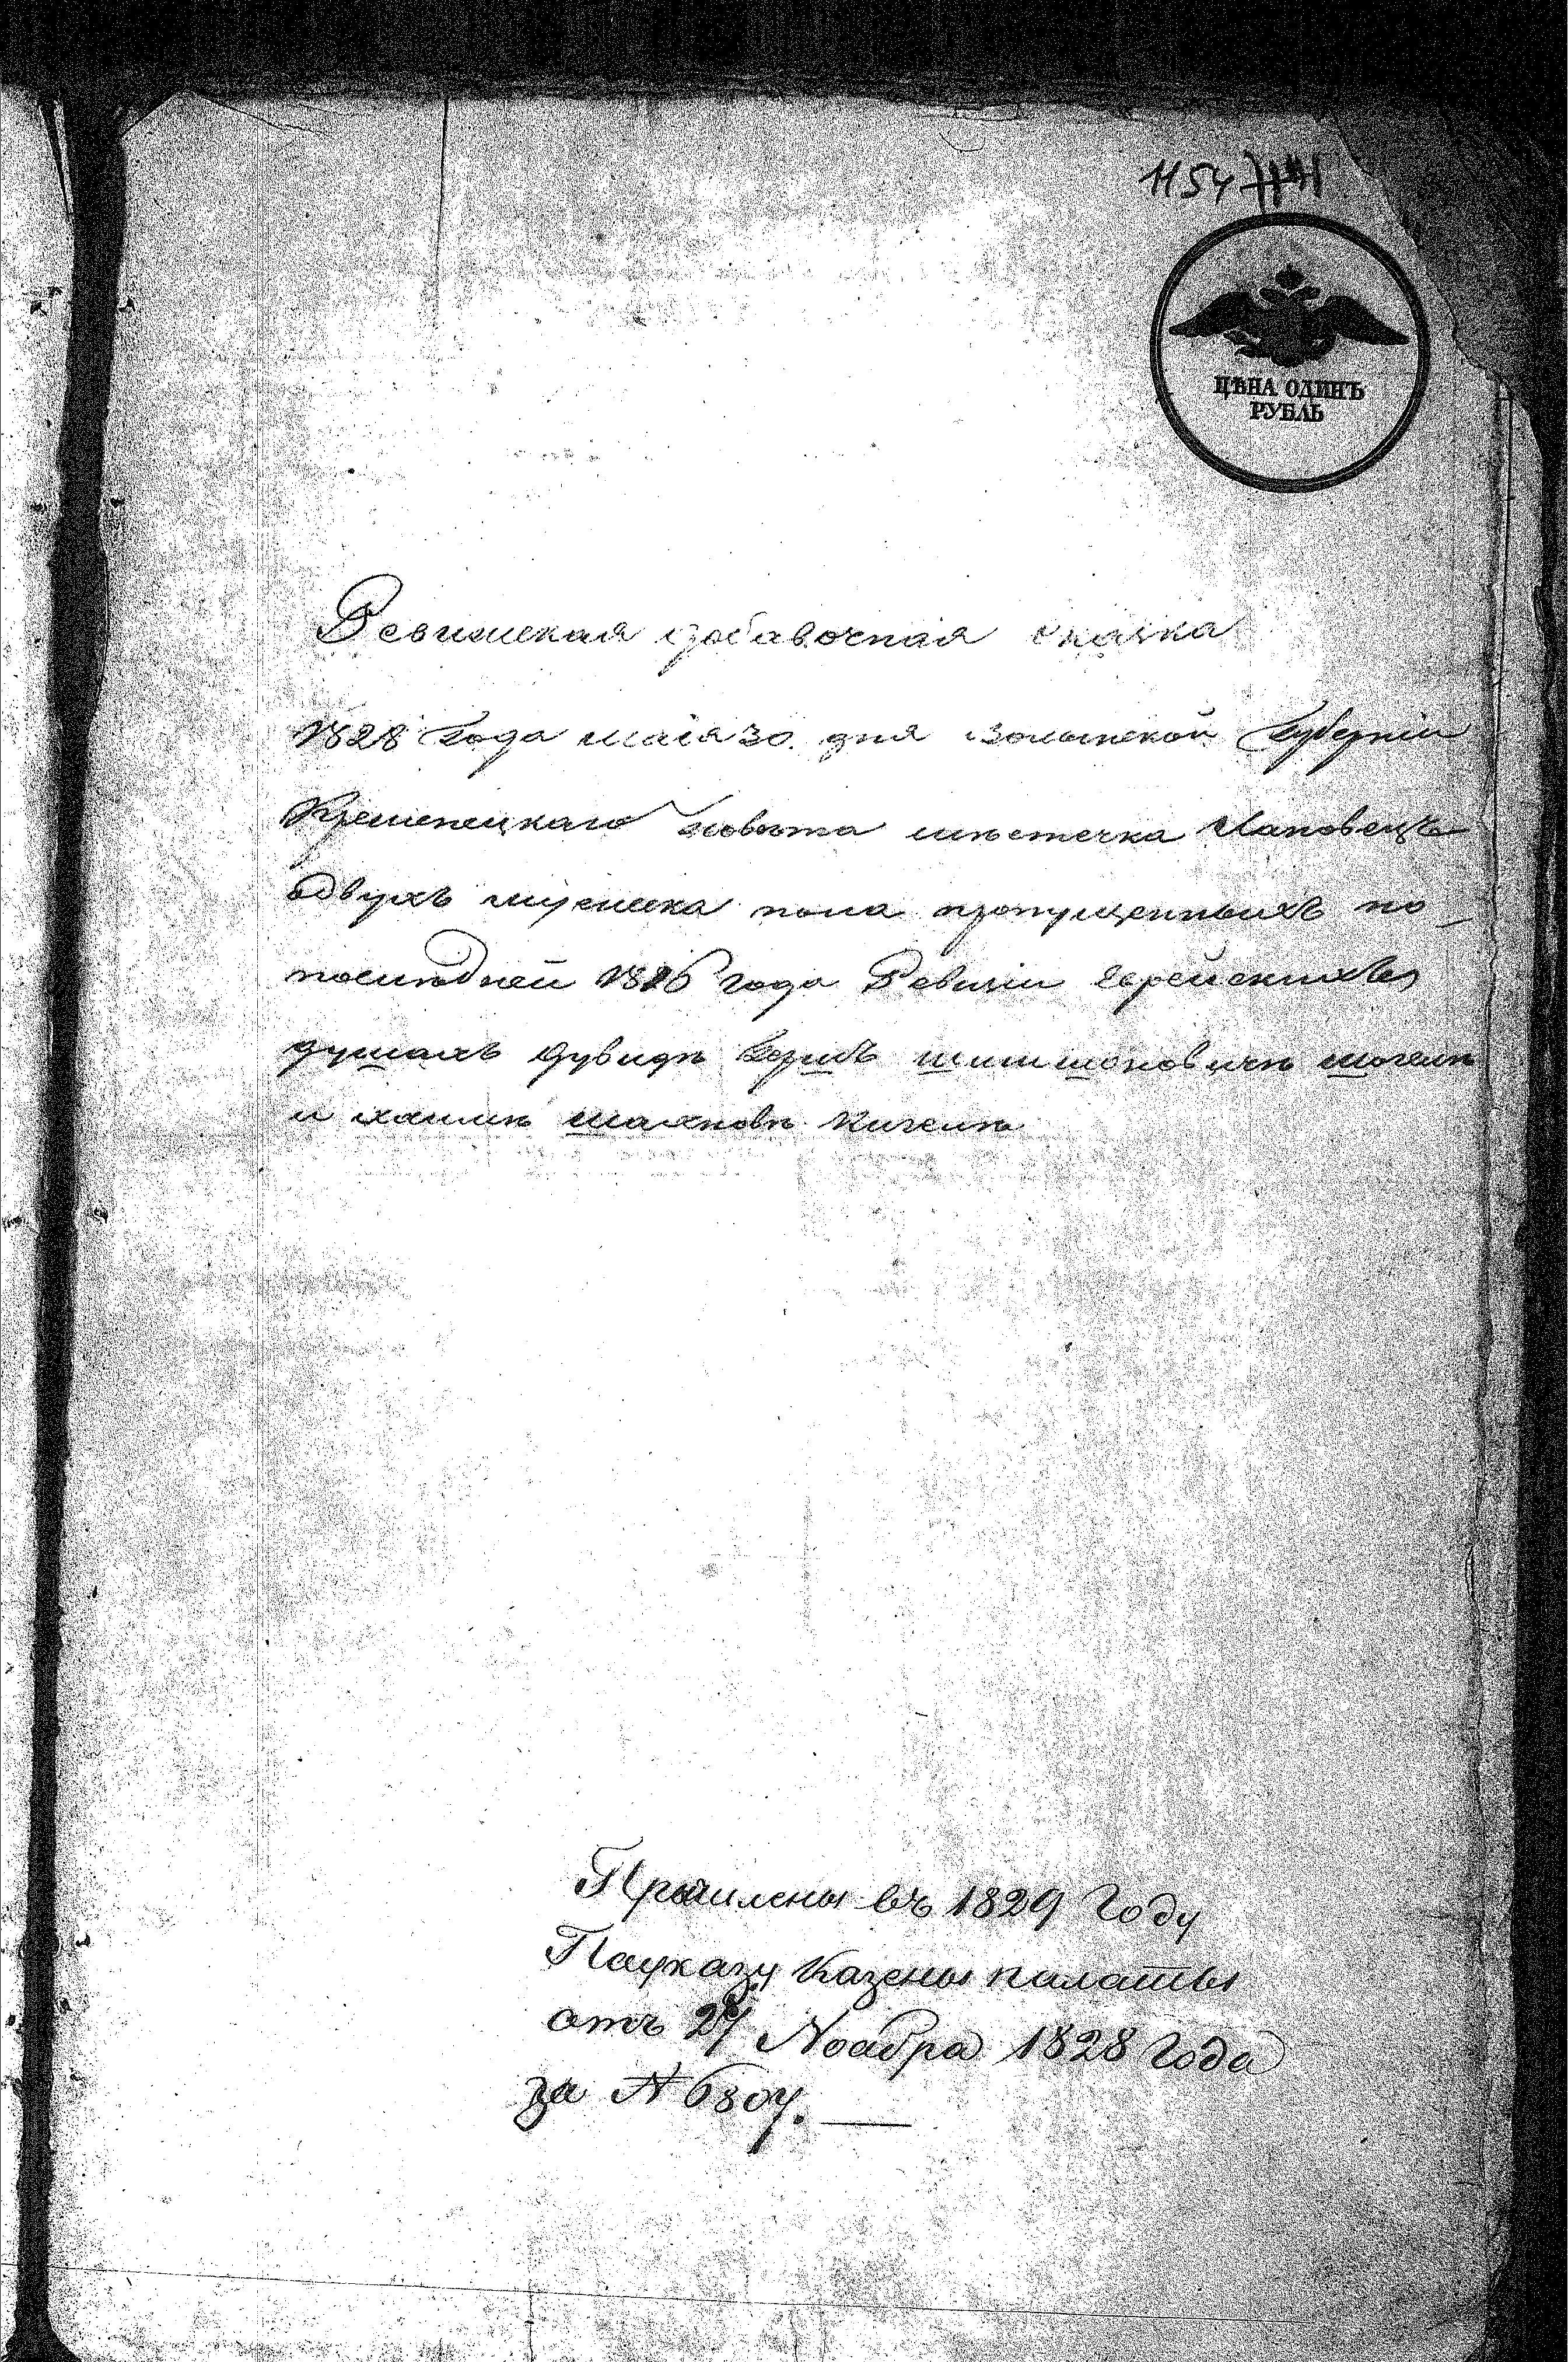 1154
ЦѢНА ОДИНЪ
РУБЛЬ
Ревизская добавочная сказка
1828 года маія 30. дня Волынской Губерніи
Кременецкаго повѣта мѣстечка Лановецъ
одвухъ мужеска пола пропущенныхъ по
послѣдней 1816 года Ревизіи Еврейскихъ
душахъ Дувидѣ Беркѣ шимшоновичѣ
и хаимѣ
въ 1829 Году
Поуказу Казеной палаты
отъ 27 Ноабра 1828 Года
за № 6807.